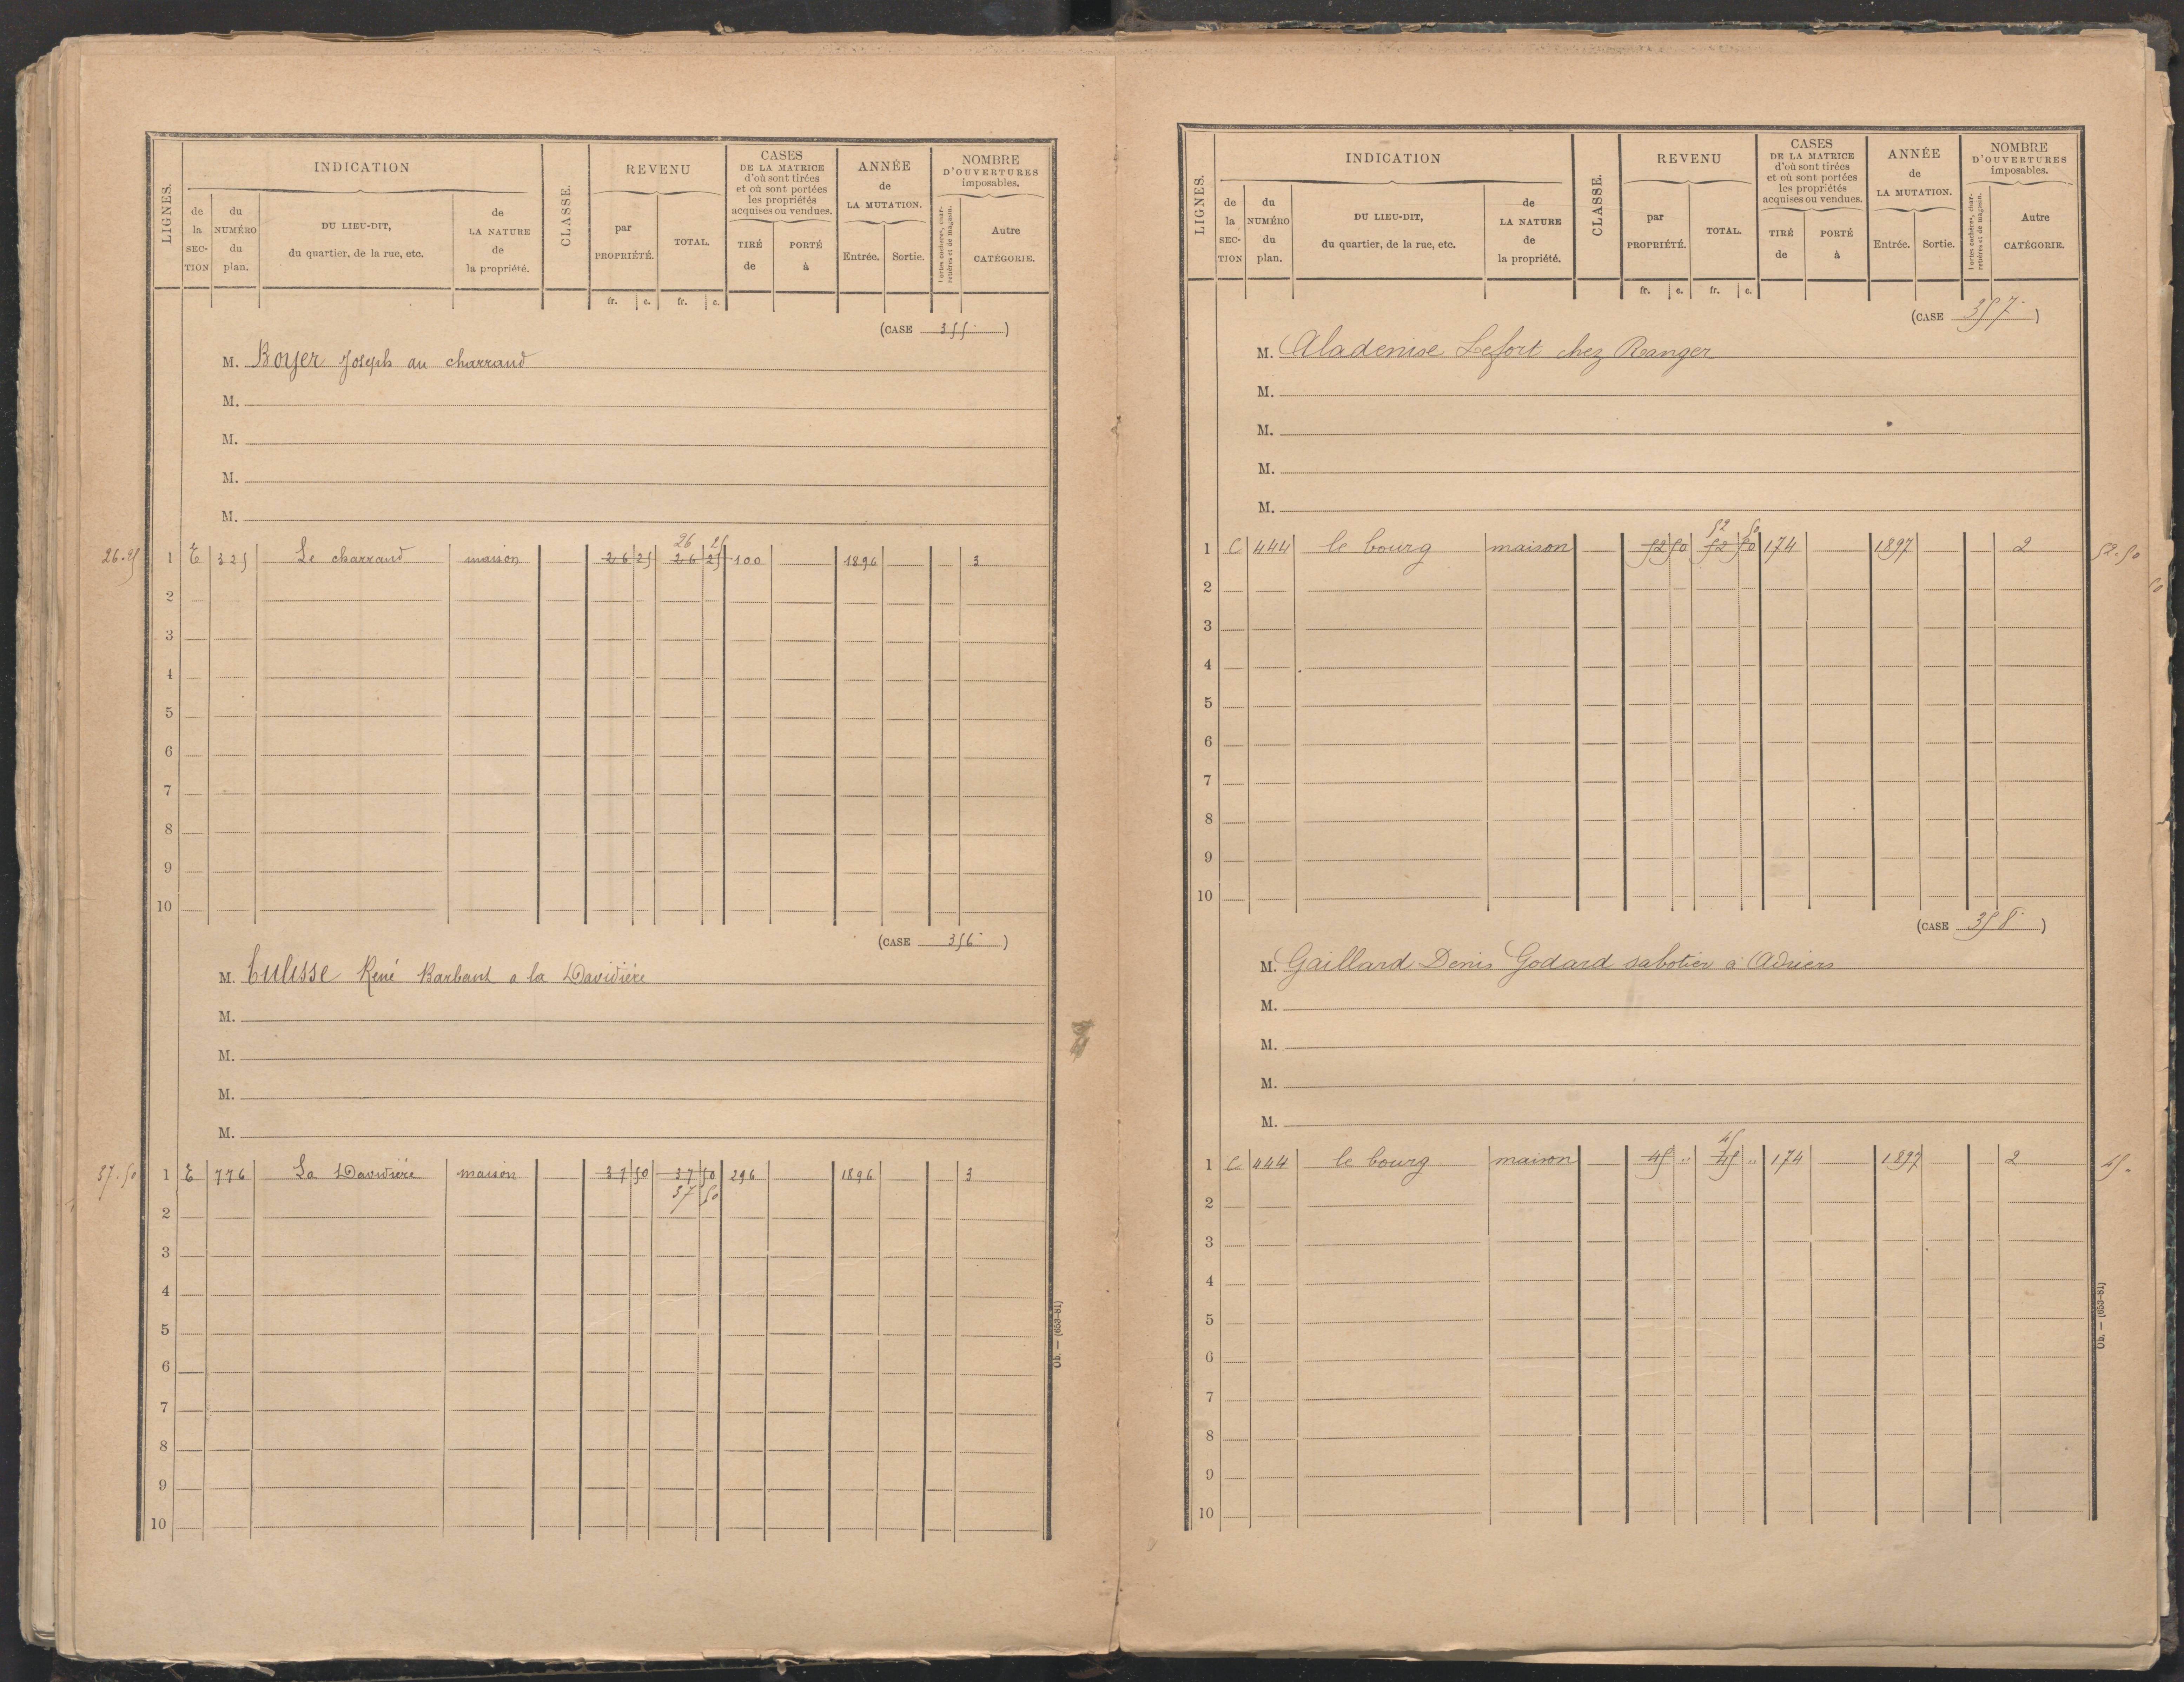 LIGNES.
INDICATION
de la SECTION
du NUMÉRO du plan.
DU LIEU-DIT, du quartier, de la rue, etc.
de LA NATURE de la propriété.
CLASSE.
REVENU
par PROPRIÉTÉ.
TOTAL.
CASES DE LA MATRICE d'où sont tirées et où sont portées les propriétés acquises ou vendues.
TIRÉ de
PORTÉ à
ANNÉE de LA MUTATION.
Entrée.
Sortie.
NOMBRE D'OUVERTURES imposables.
Portes cochères, charretières et de magasin.
Autre CATÉGORIE.
fr. c. fr. c.
(CASE 355 )
M. Boyer Joseph au charraud
M.
M.
M.
M.
26.25 1 E 325 Le charraud maison 26 25 26 25 26 25 100 1896 3
2
3
4
5
6
7
8
9
10
(CASE 356 )
M. René Barbant a la Davidière
M.
M.
M.
M.
37.50 1 E 776 La Davidière maison 37 50 37 50 296 1896 3
37 50
2
3
4
5
6
7
8
9
10
Ob. — (653-81)
LIGNES.
INDICATION
de la SECTION
du NUMÉRO du plan.
DU LIEU-DIT, du quartier, de la rue, etc.
de LA NATURE de la propriété.
CLASSE.
REVENU
par PROPRIÉTÉ.
TOTAL.
CASES DE LA MATRICE d'où sont tirées et où sont portées les propriétés acquises ou vendues.
TIRÉ de
PORTÉ à
ANNÉE de LA MUTATION.
Entrée.
Sortie.
NOMBRE D'OUVERTURES imposables.
Portes cochères, charretières et de magasin.
Autre CATÉGORIE.
fr. c. fr. c.
(CASE 357 )
M. Aladenise Lefort chez Ranger
M.
M.
M.
M.
52 50
1 C 444 le bourg maison 52 50 52 50 174 1897 2 52.50
2
3
4
5
6
7
8
9
10
(CASE 358 )
M. Gaillard Denis Godard sabotier à Adriers
M.
M.
M.
M.
45
1 C 444 le bourg maison 45 " 45 " 174 1897 2 45.
2
3
4
5
6
7
8
9
10
Ob. — (653-81)